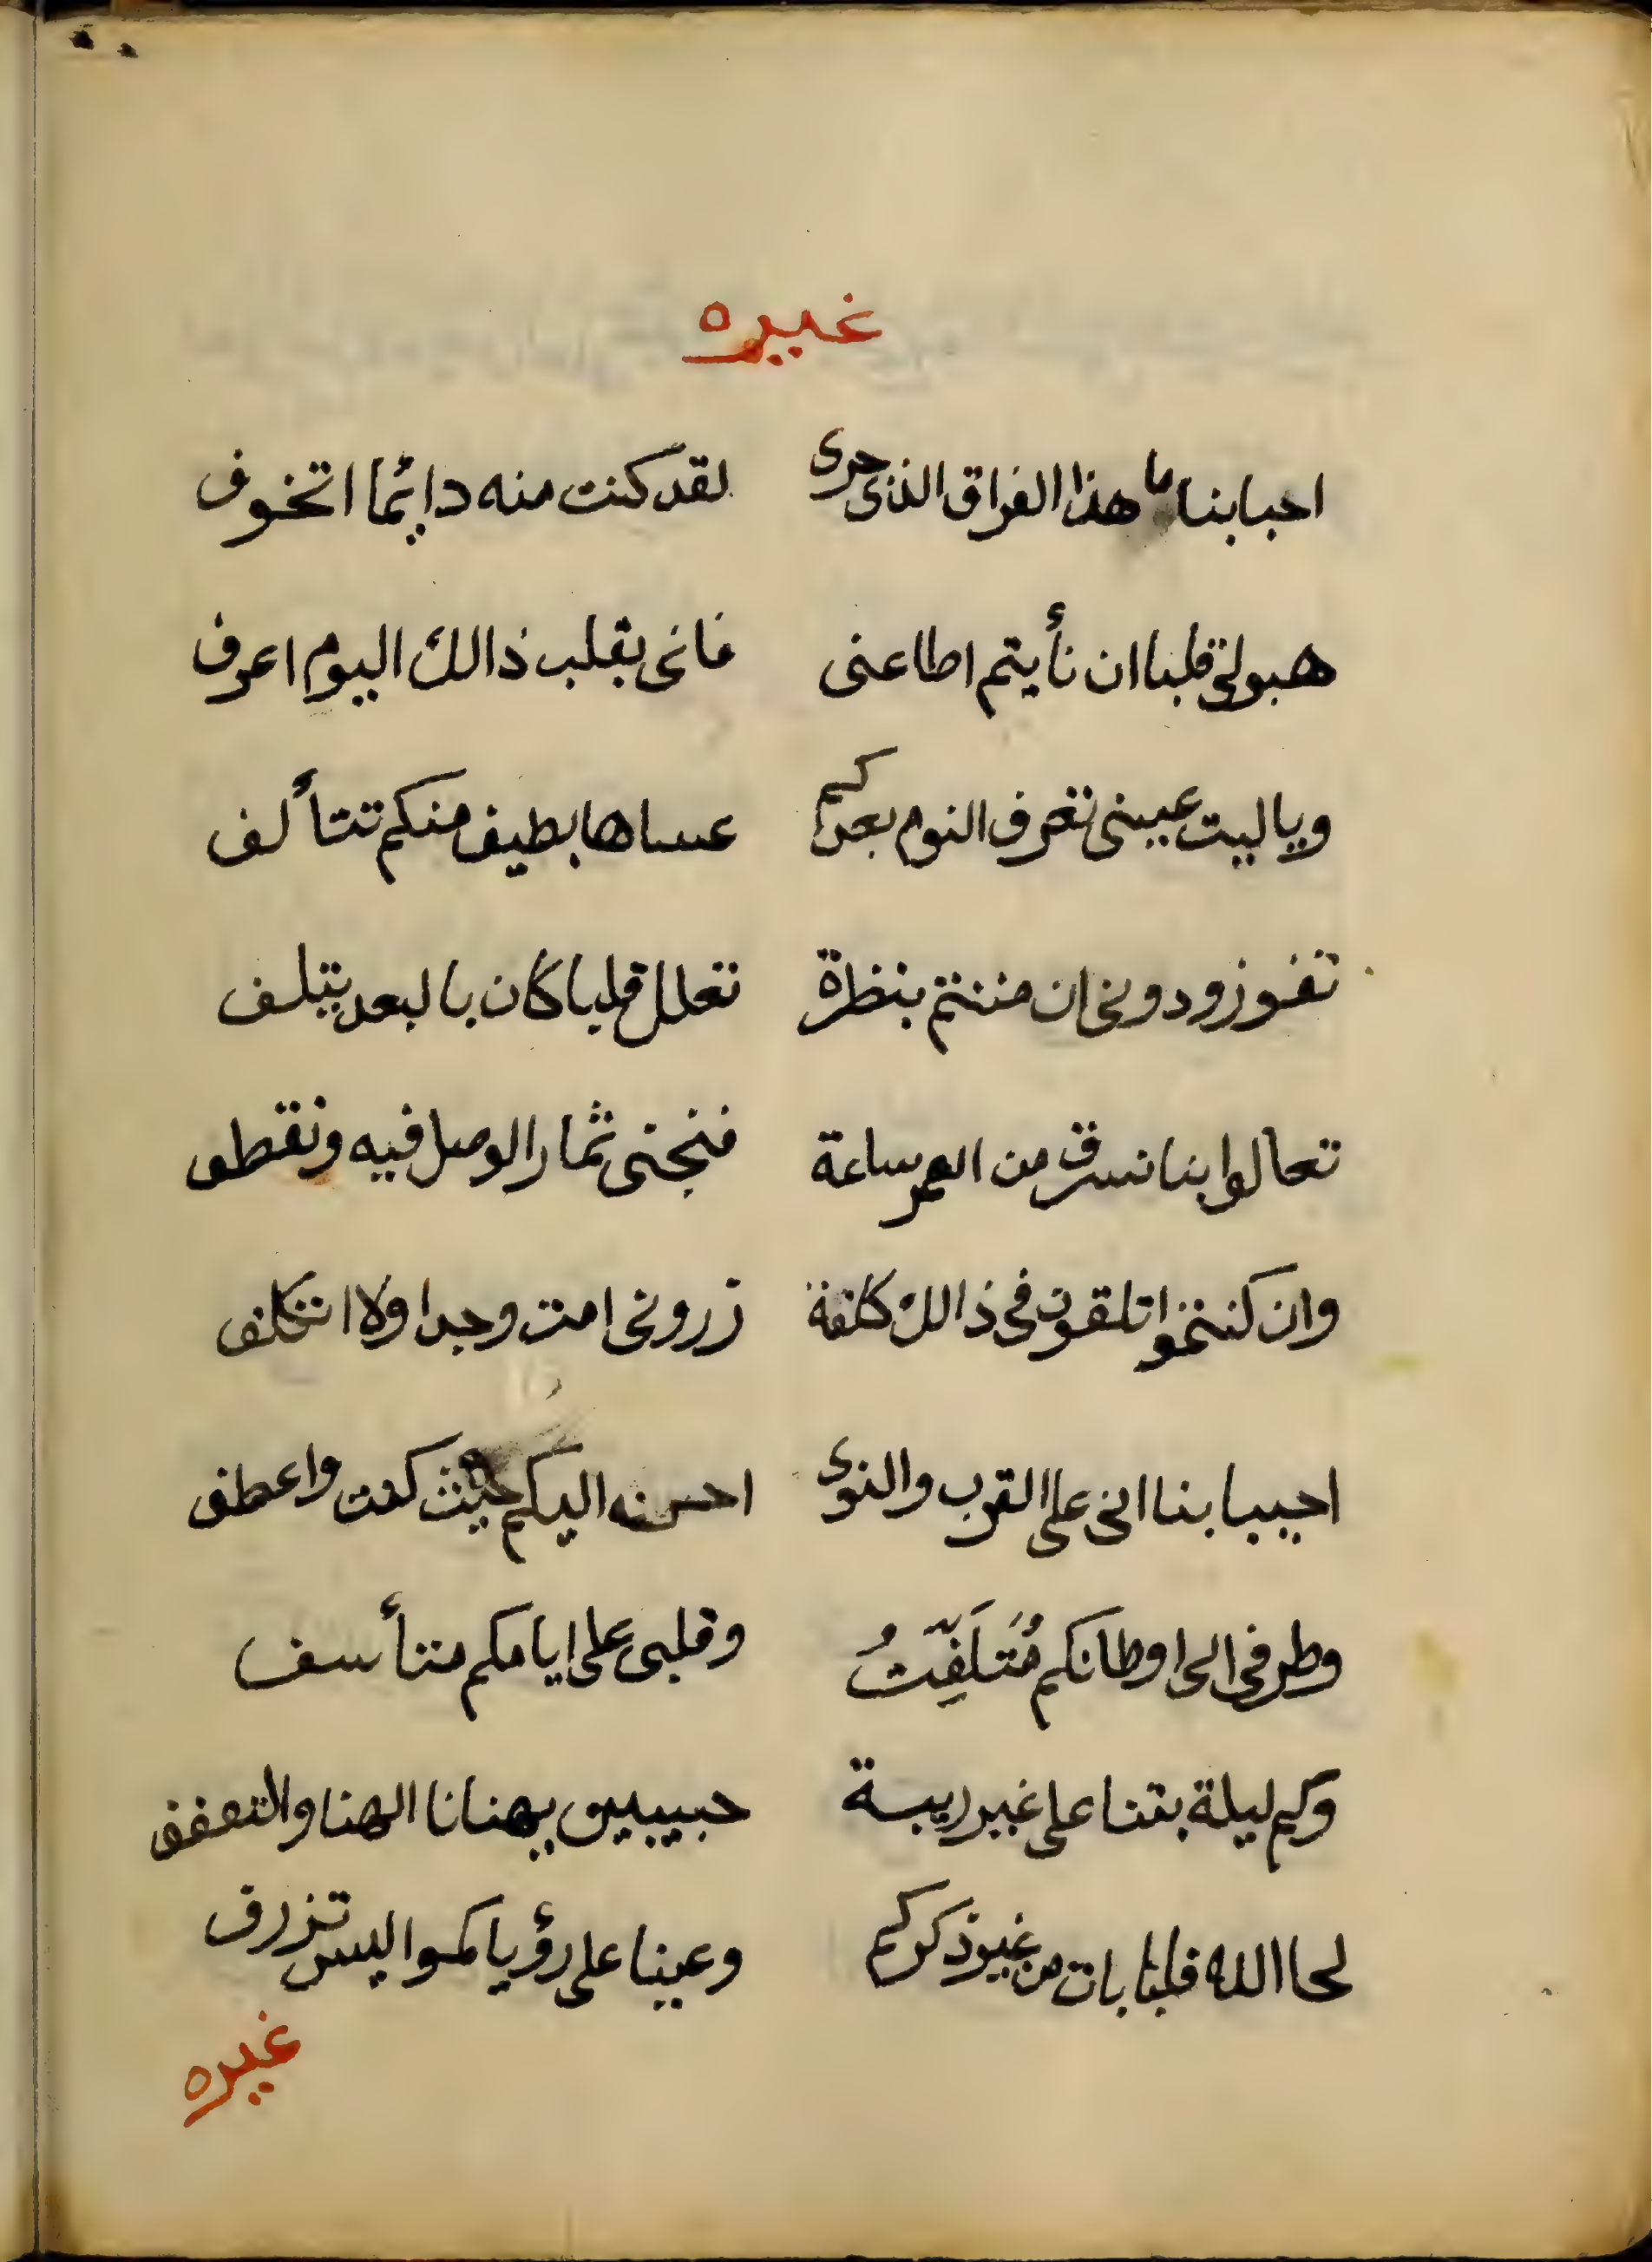 غيره
احبابنا ما هذا الفراق الذى جرى لقد كنت منه دائما اتخوف
هبولى قلبا ان نأيتم اطاعنى فانى بقلب ذالك اليوم اعرف
وياليت عينى تعرف النوم بعدكم عساها بطيف منكم تتألف
تفوزودونى ان مننتم بنظرة تعلل قلبا كان بالبعد يتلف
تعالوا بنا نسرق من العمر ساعة فنجنى ثمار الوصل فيه ونقطف
وان كنتموا تلقون فى ذالك كلفة زرونى امت وجدا ولا اتكلف
احيبابنا انى على القرب والنوى احن اليكم حيث كنت واعطف
وطرفى الى اوطانكم مُتَلَفِّتُ وقلبى على ايامكم متأسف
وكم ليلة بتنا على غير ريبة حبيبين يهنانا الهنا والتعفف
لحا الله قلبا بات من غير ذكركم وعينا على رؤياكموا ليس تزرف
غيره